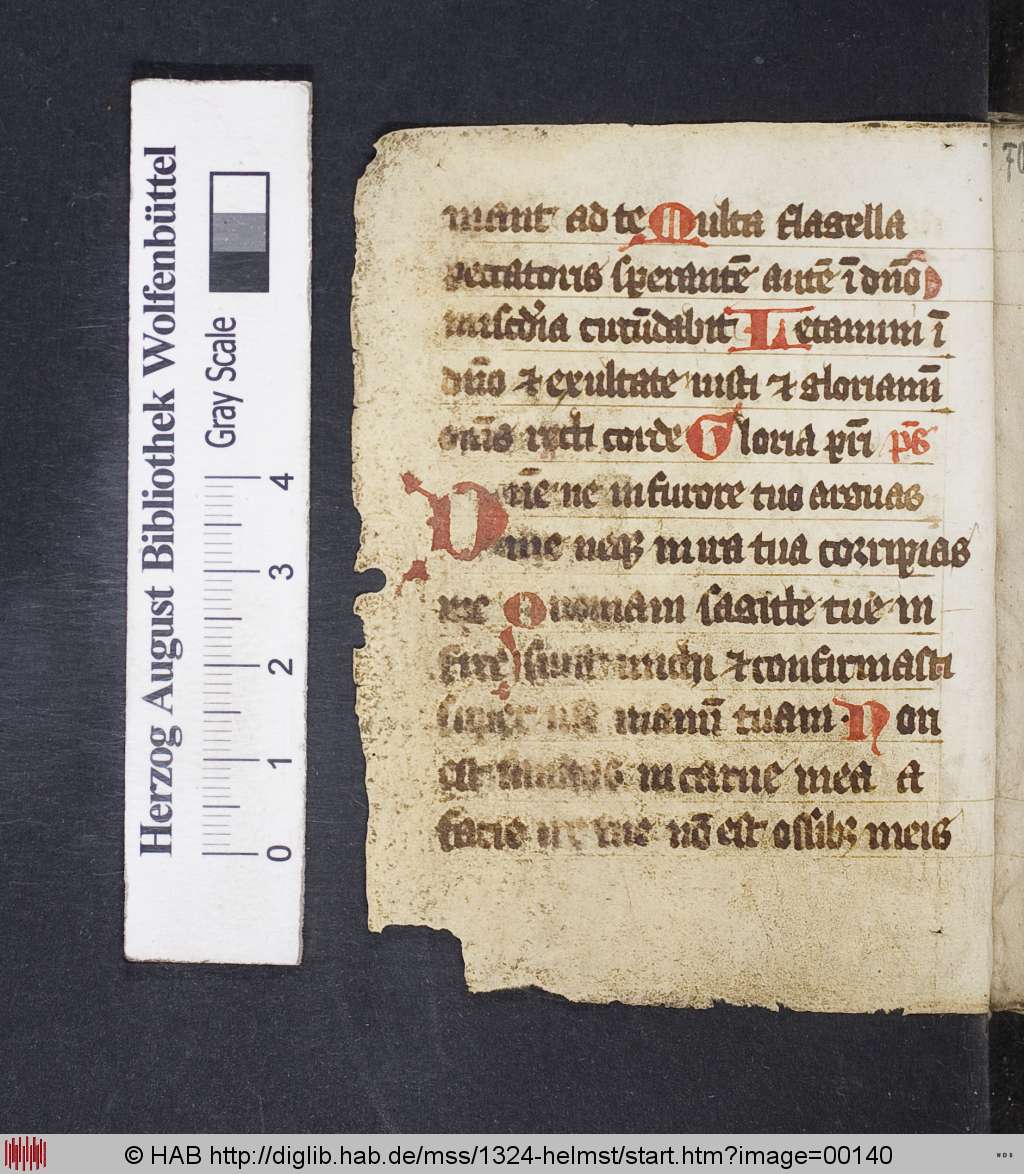 Herzog August Bibliothek Wolfenbüttel
Gray Scale
0 1 2 3 4
70
mant ad te Multa flagella
peccatoris sperantē autē ī dn̄o
miscd̓ia circūdabit Letamini ī
dn̄o ⁊ exultate iusti ⁊ gloriamī
om̄s recti corde Gloria pr̄i p̄s
Dn̄e ne in furore tuo arguas
me neqꝫ in ira tua corripias
me Quoniam sagitte tue in
fixe sunt michi ⁊ confirmasti
super me manū tuam Non
est sanitas in carne mea a
facie ire tue nō est ossibꝫ meis
© HAB http://diglib.hab.de/mss/1324-helmst/start.htm?image=00140